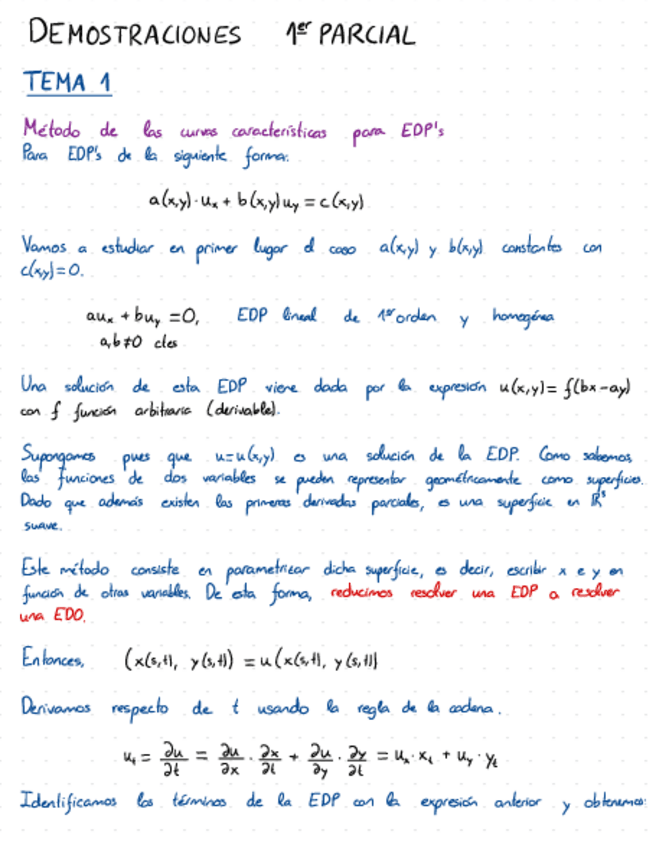 DEMOSTRACIONES 1er PARCIAL
TEMA 1
Método de las curvas características para EDP's
Para EDP's de la siguiente forma:
a(x,y)·uₓ + b(x,y)u_y = c(x,y)
Vamos a estudiar en primer lugar el caso a(x,y) y b(x,y) constantes con
c(x,y)=0.
auₓ + bu_y = 0, EDP lineal de 1er orden y homogénea
a,b≠0 ctes
Una solución de esta EDP viene dada por la expresión u(x,y)= f(bx-ay)
con f función arbitraria (derivable).
Supongamos pues que u=u(x,y) es una solución de la EDP. Como sabemos,
las funciones de dos variables se pueden representar geométricamente como superficies.
Dado que además existen las primeras derivadas parciales, es una superficie en ℝ³
suave.
Este método consiste en parametrizar dicha superficie, es decir, escribir x e y en
función de otras variables. De esta forma, reducimos resolver una EDP a resolver
una EDO.
Entonces, (x(s,t), y(s,t)) = u(x(s,t), y(s,t))
Derivamos respecto de t usando la regla de la cadena.
u_t = ∂u/∂t = ∂u/∂x · ∂x/∂t + ∂u/∂y · ∂y/∂t = uₓ·x_t + u_y·y_t
Identificamos los términos de la EDP con la expresión anterior y obtenemos: